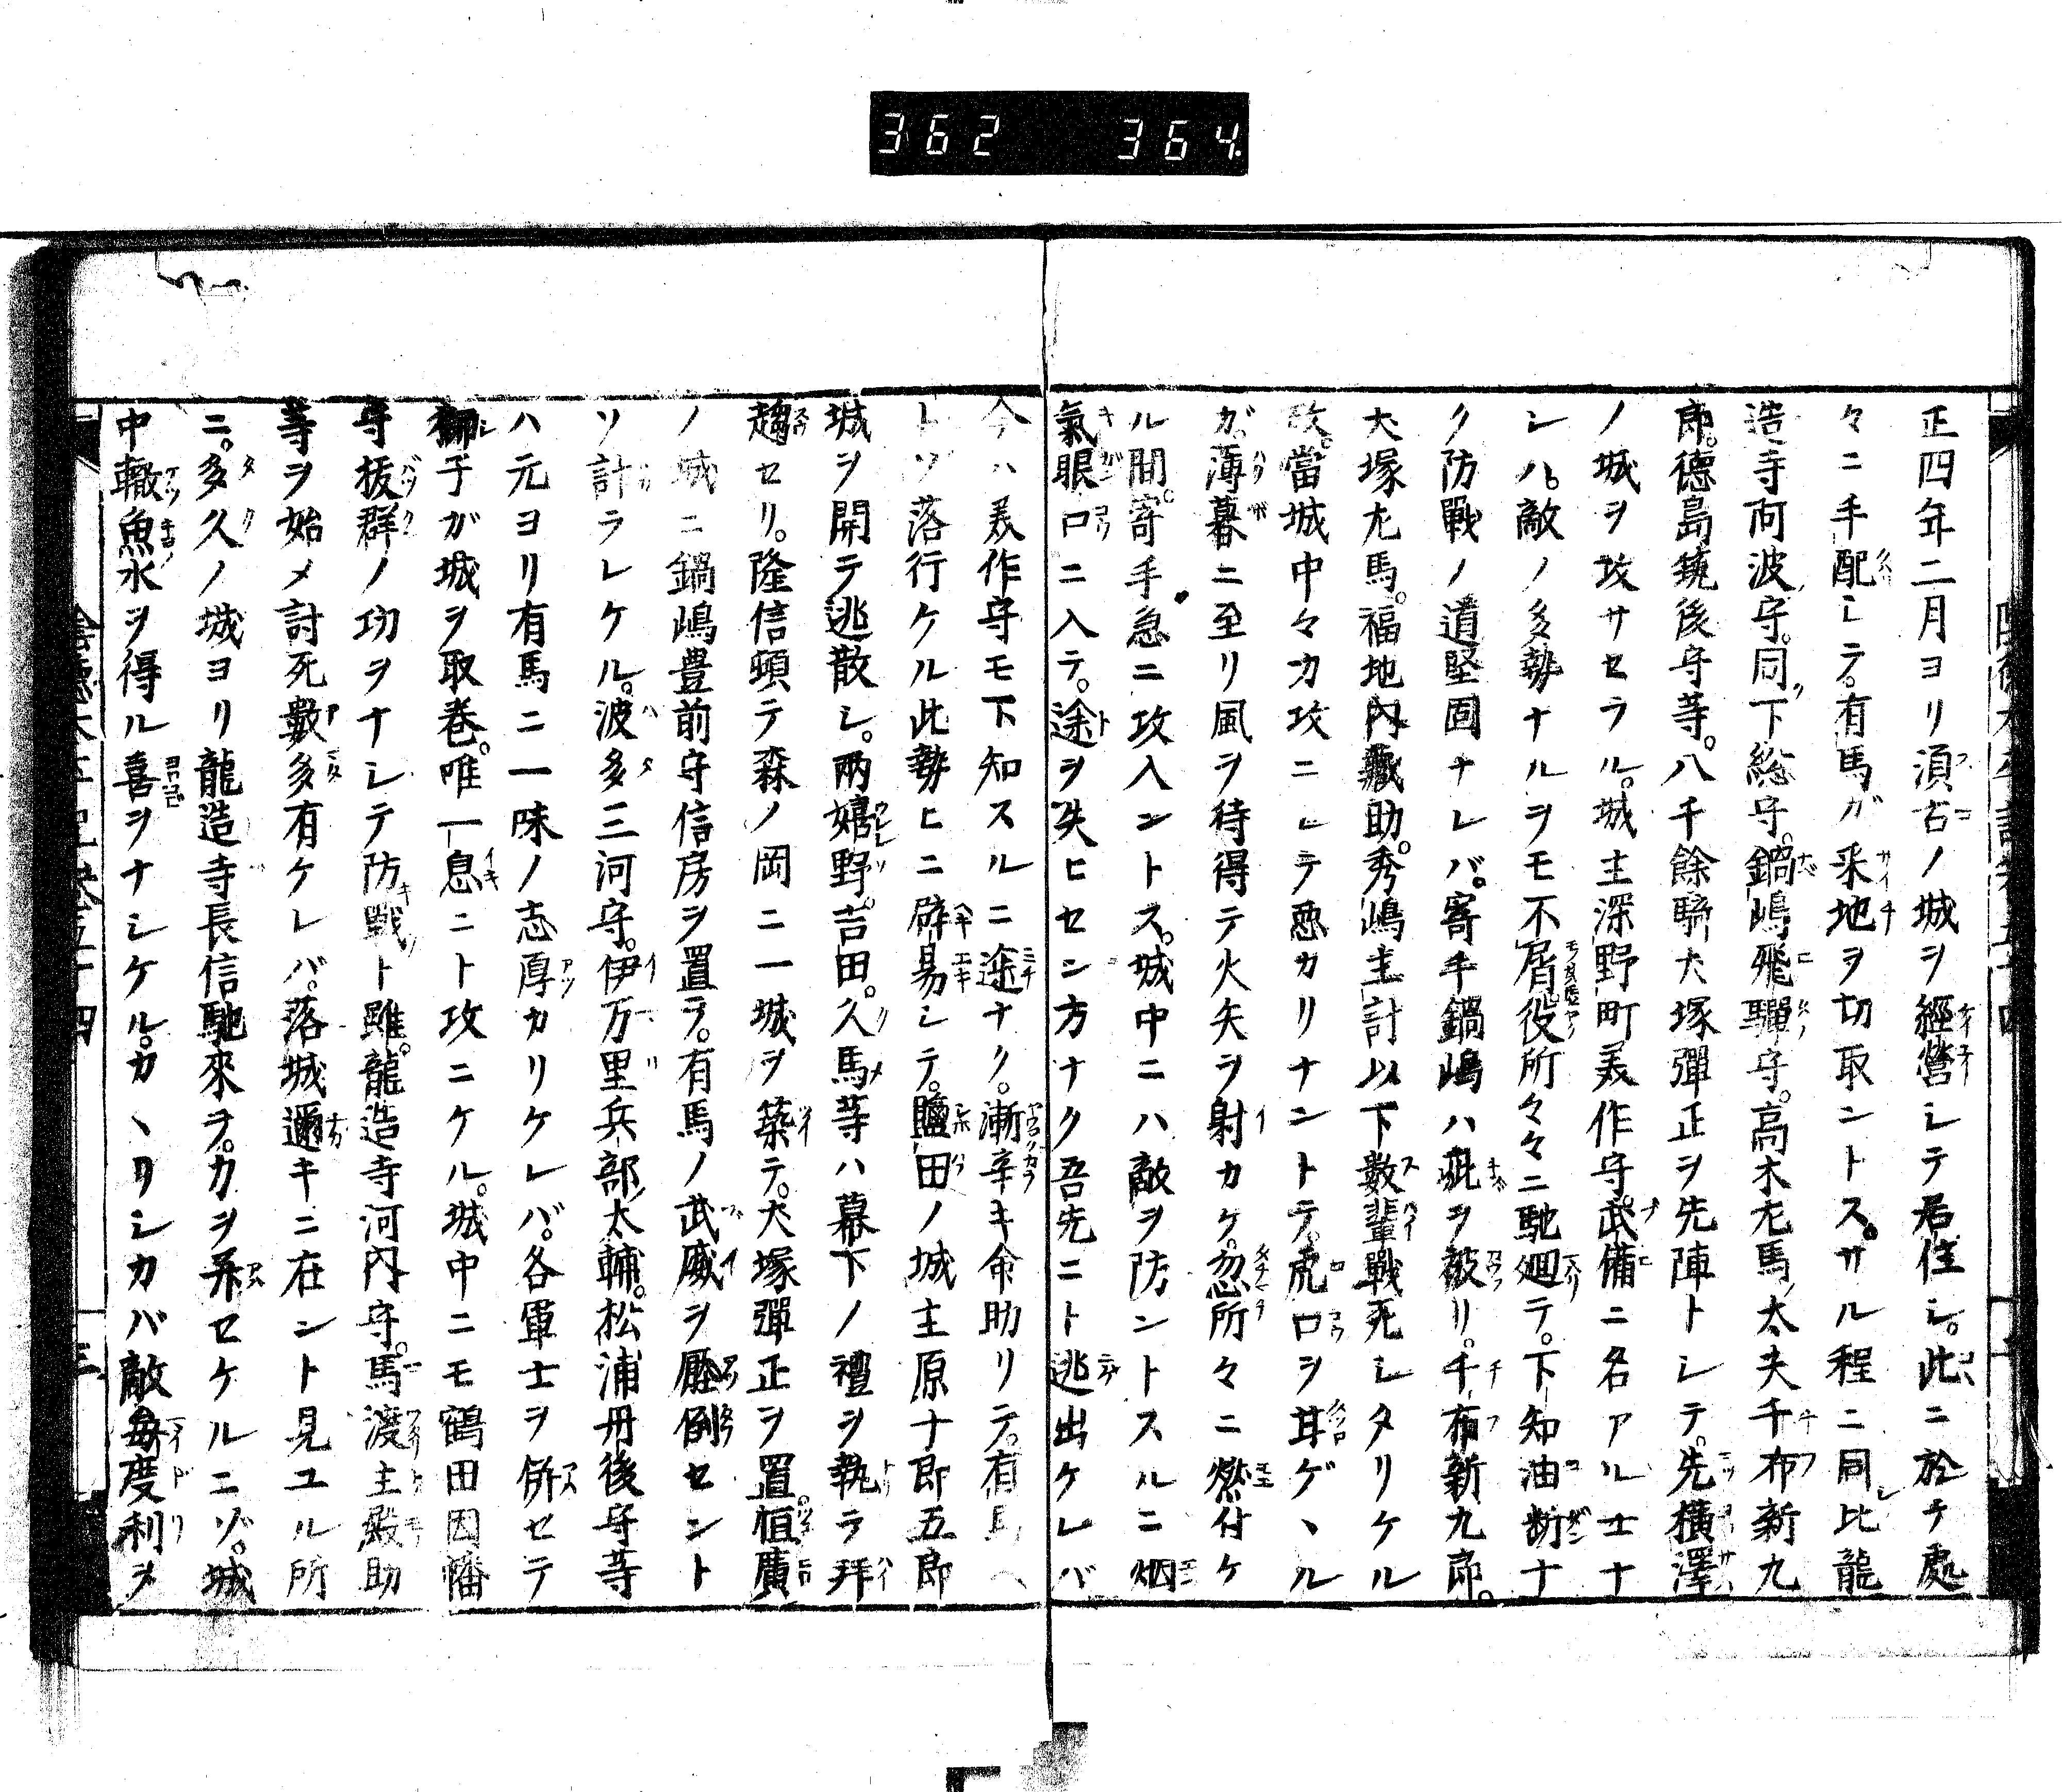 362 364
正四年二月ヨリ須古ノ城ヲ經營シテ居住シ。此ニ於テ處
々ニ手配シテ。有馬ガ釆地ヲ切取ントス。サル程ニ同比龍
造寺阿波守。同下総守。鍋嶋飛驒守。高木尤馬太夫千布新九
郎。徳島筑後守等。八千餘騎大塚彈正ヲ先陣トシテ。先横澤
ノ城ヲ攻サセラル。城主深野町美作守。武備ニ名アル士ナ
シハ。敵ノ多勢ナルヲモ不屑役所々々ニ馳廻テ。下知油断ナ
ク防戰ノ道堅固ナレバ。寄手鍋嶋ハ疵ヲ被リ。千布新九郎。
大塚尤馬。福地内藏助。秀嶋主計以下數輩戰死シタリケル
故。當城中々力攻ニシテ悪カリナントテ。虎口ヲ甘ゲヽル
ガ。薄暮ニ至リ風ヲ待得テ火矢ヲ射カケ。忽所々ニ燃付ケ
ル間。寄手急ニ攻入ントス。城中ニハ敵ヲ防ントスルニ烟
氣眼口ニ入テ。途ヲ失ヒセン方ナク吾先ニト逃出ケレバ
今ハ美作守モ下知スルニ途ナク。漸辛キ命助リテ。有馬ヘ
トソ落行ケル此勢ヒニ辟易シテ。鹽田ノ城主原十郎五郎
城ヲ開テ逃散シ。両嬉野。吉田。久馬等ハ幕下ノ禮ヲ執テ拜
趨セリ。隆信頓テ森ノ岡ニ一城ヲ築テ。大塚彈正ヲ置。恒廣
ノ城ニ鍋嶋豊前守信房ヲ置テ。有馬ノ武威ヲ壓倒セント
ソ計ラレケル。波多三河守。伊万里兵部太輔。松浦丹後守等
ハ元ヨリ有馬ニ一味ノ志厚カリケレバ。各軍士ヲ併セテ
獅子ガ城ヲ取巻。唯一息ニト攻ニケル。城中ニモ鶴田因幡
守抜群ノ功ヲナシテ防戰ト雖。龍造寺河内守。馬渡主殿助
等ヲ始メ討死數多有ケレバ。落城邇キニ在ント見ユル所
ニ。多久ノ城ヨリ龍造寺長信馳來ヲ。カヲ并セケルニゾ。城
中轍魚水ヲ得ル喜ヲナシケル。カヽリシカバ敵毎度利ヲ